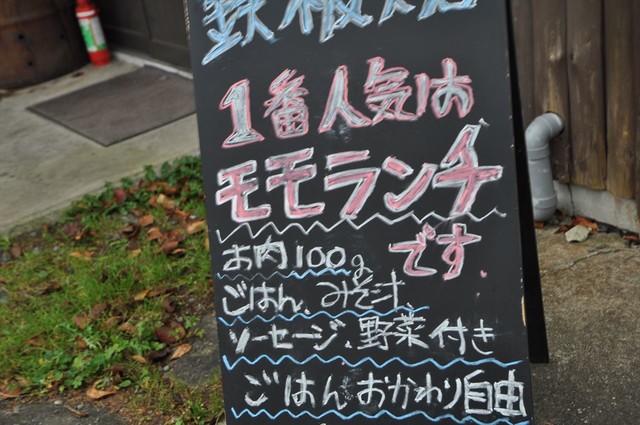 1番人気は
モモランチ
です.
お肉100g
ごはん、みそ汁、
ソーセージ、野菜付き
ごはんおかわり自由